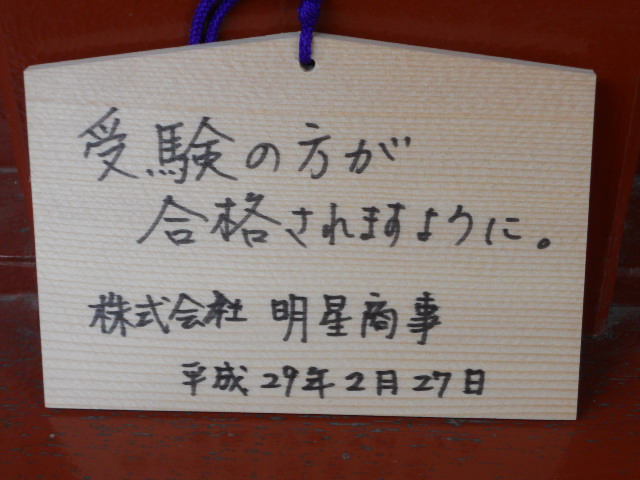 受験の方が
合格されますように。
株式会社 明星商事
平成29年2月27日